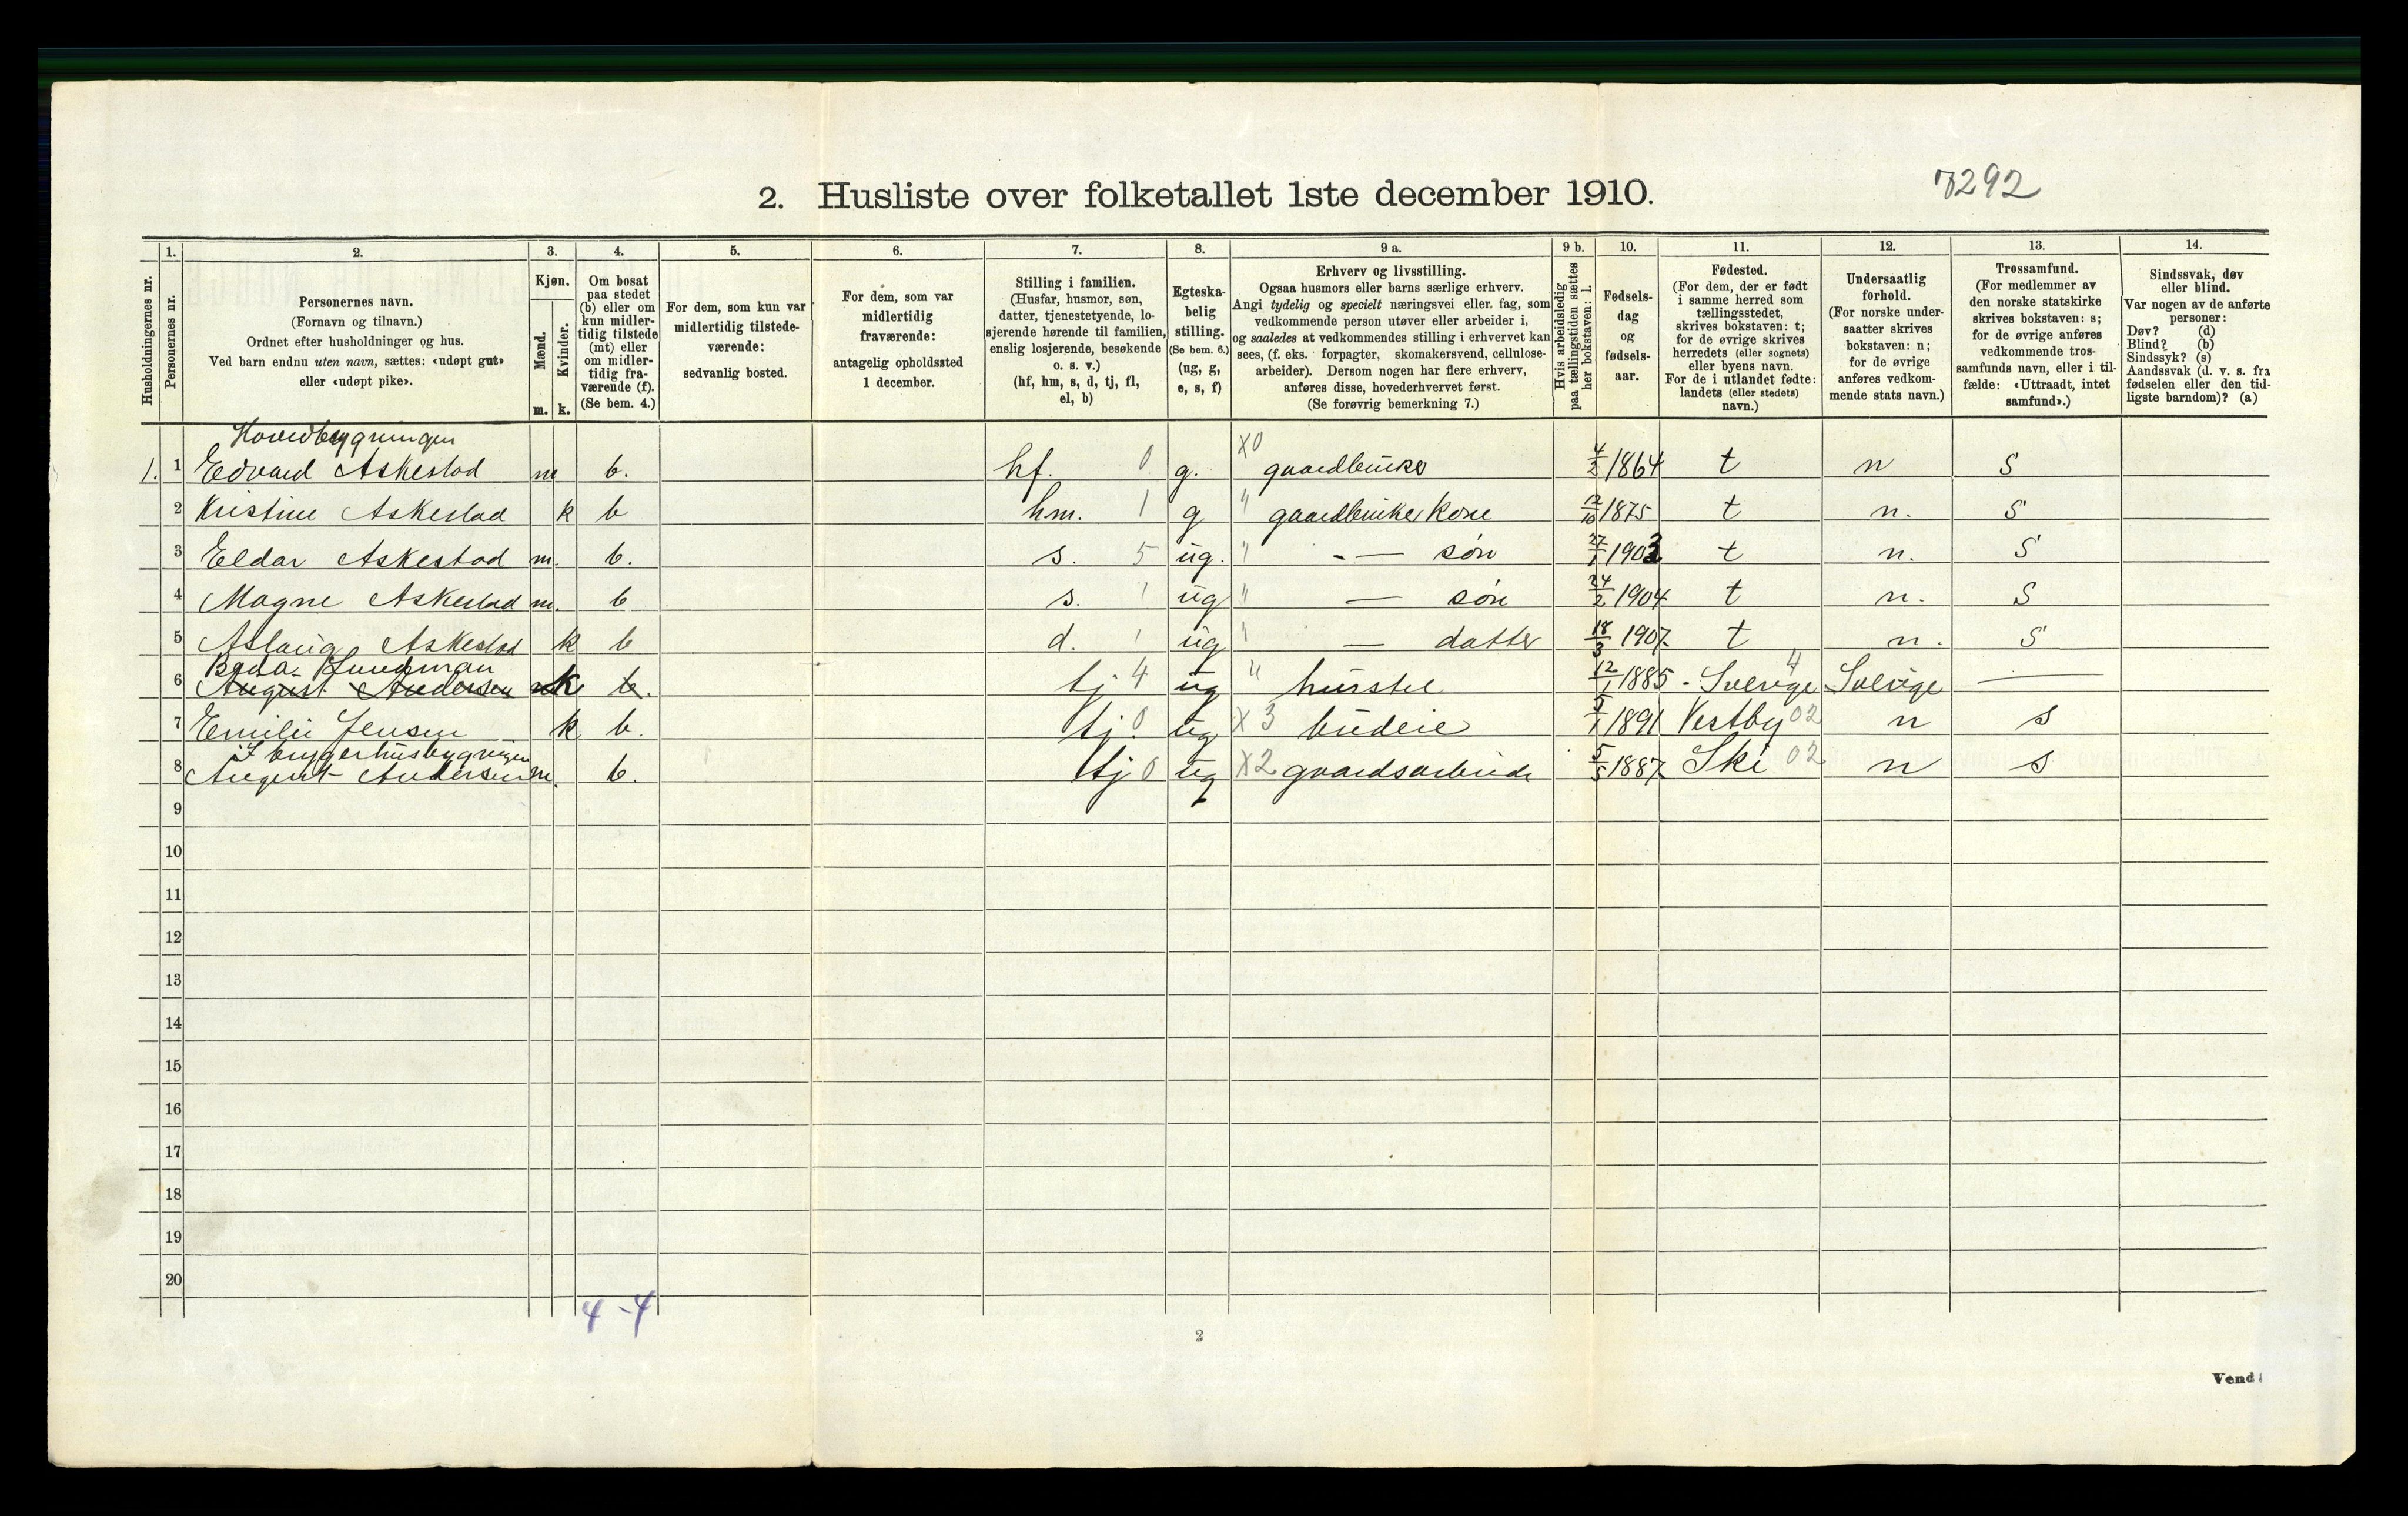 2. Husliste over folketallet 1ste december 1910.
7292
Husholdningernes nr.
1.
Personernes nr.
2.
Personernes navn.
(Fornavn og tilnavn.)
Ordnet efter husholdninger og hus.
Ved barn endnu uten navn, sættes: «udøpt gut»
eller «udøpt pike».
3.
Kjøn.
Mænd.
Kvinder.
m. k.
4.
Om bosat
paa stedet
(b) eller om
kun midler-
tidig tilstede
(mt) eller
om midler-
tidig fra-
værende (f).
(Se bem. 4.)
5.
For dem, som kun var
midlertidig tilstede-
værende:
sedvanlig bosted.
6.
For dem, som var
midlertidig
fraværende:
antagelig opholdssted
1 december.
7.
Stilling i familien.
(Husfar, husmor, søn,
datter, tjenestetyende, lo-
sjerende hørende til familien,
enslig losjerende, besøkende
o. s. v.)
(hf, hm, s, d, tj, fl,
el, b)
8.
Egteska-
belig
stilling.
(Se bem. 6.)
(ug, g,
e, s, f)
9 a.
Erhverv og livsstilling.
Ogsaa husmors eller barns særlige erhverv.
Angi tydelig og specielt næringsvei eller fag, som
vedkommende person utøver eller arbeider i,
og saaledes at vedkommendes stilling i erhvervet kan
sees, (f. eks. forpagter, skomakersvend, cellulose-
arbeider). Dersom nogen har flere erhverv,
anføres disse, hovederhvervet først.
(Se forøvrig bemerkning 7.)
9 b.
Hvis arbeidsledig
paa tællingstiden sættes
her bokstaven: l.
10.
Fødsels-
dag
og
fødsels-
aar.
11.
Fødested.
(For dem, der er født
i samme herred som
tællingsstedet,
skrives bokstaven: t;
for de øvrige skrives
herredets (eller sognets)
eller byens navn.
For de i utlandet fødte:
landets (eller stedets)
navn.)
12.
Undersaatlig
forhold.
(For norske under-
saatter skrives
bokstaven: n;
for de øvrige
anføres vedkom-
mende stats navn.)
13.
Trossamfund.
(For medlemmer av
den norske statskirke
skrives bokstaven: s;
for de øvrige anføres
vedkommende tros-
samfunds navn, eller i til-
fælde: «Uttraadt, intet
samfund».)
14.
Sindssvak, døv
eller blind.
Var nogen av de anførte
personer:
Døv? (d)
Blind? (b)
Sindssyk? (s)
Aandssvak (d. v. s. fra
fødselen eller den tid-
ligste barndom)? (a)
Hovedbygningen
1. 1 Edvard Askestad m b. hf. 0 g. X0 gaardbruker 4/2 1864 t n S
2 Kristine Askestad k b hm. 1 g " gaardbruker kone 12/10 1875 t n. S
3 Eldar Askestad m. b. s. 5 ug. " - — søn 27/1 1903 t n. S
4 Magne Askestad m. b s. ' ug " — søn 24/2 1904 t n. S
5 Aslaug Askestad k b d. ' ug " — datter 18/3 1907 t n. S
Beda Lundman
6 August Andersen k b. tj 4 ug " husstel 12/1 1885 - Sverige 4 Sverige —
7 Emilie Jensen k b. tj. 0 ug X 3 budeie 5/1 1891 Vestby 02 n s
I bryggerhusbygnigen
8 August Andersen m. b. tj 0 ug X2 gaardsarbeide 5/5 1887 Ski 02 n s
9
10
11
12
13
14
15
16
17
18
19
20
4 - 4
2
Vend!